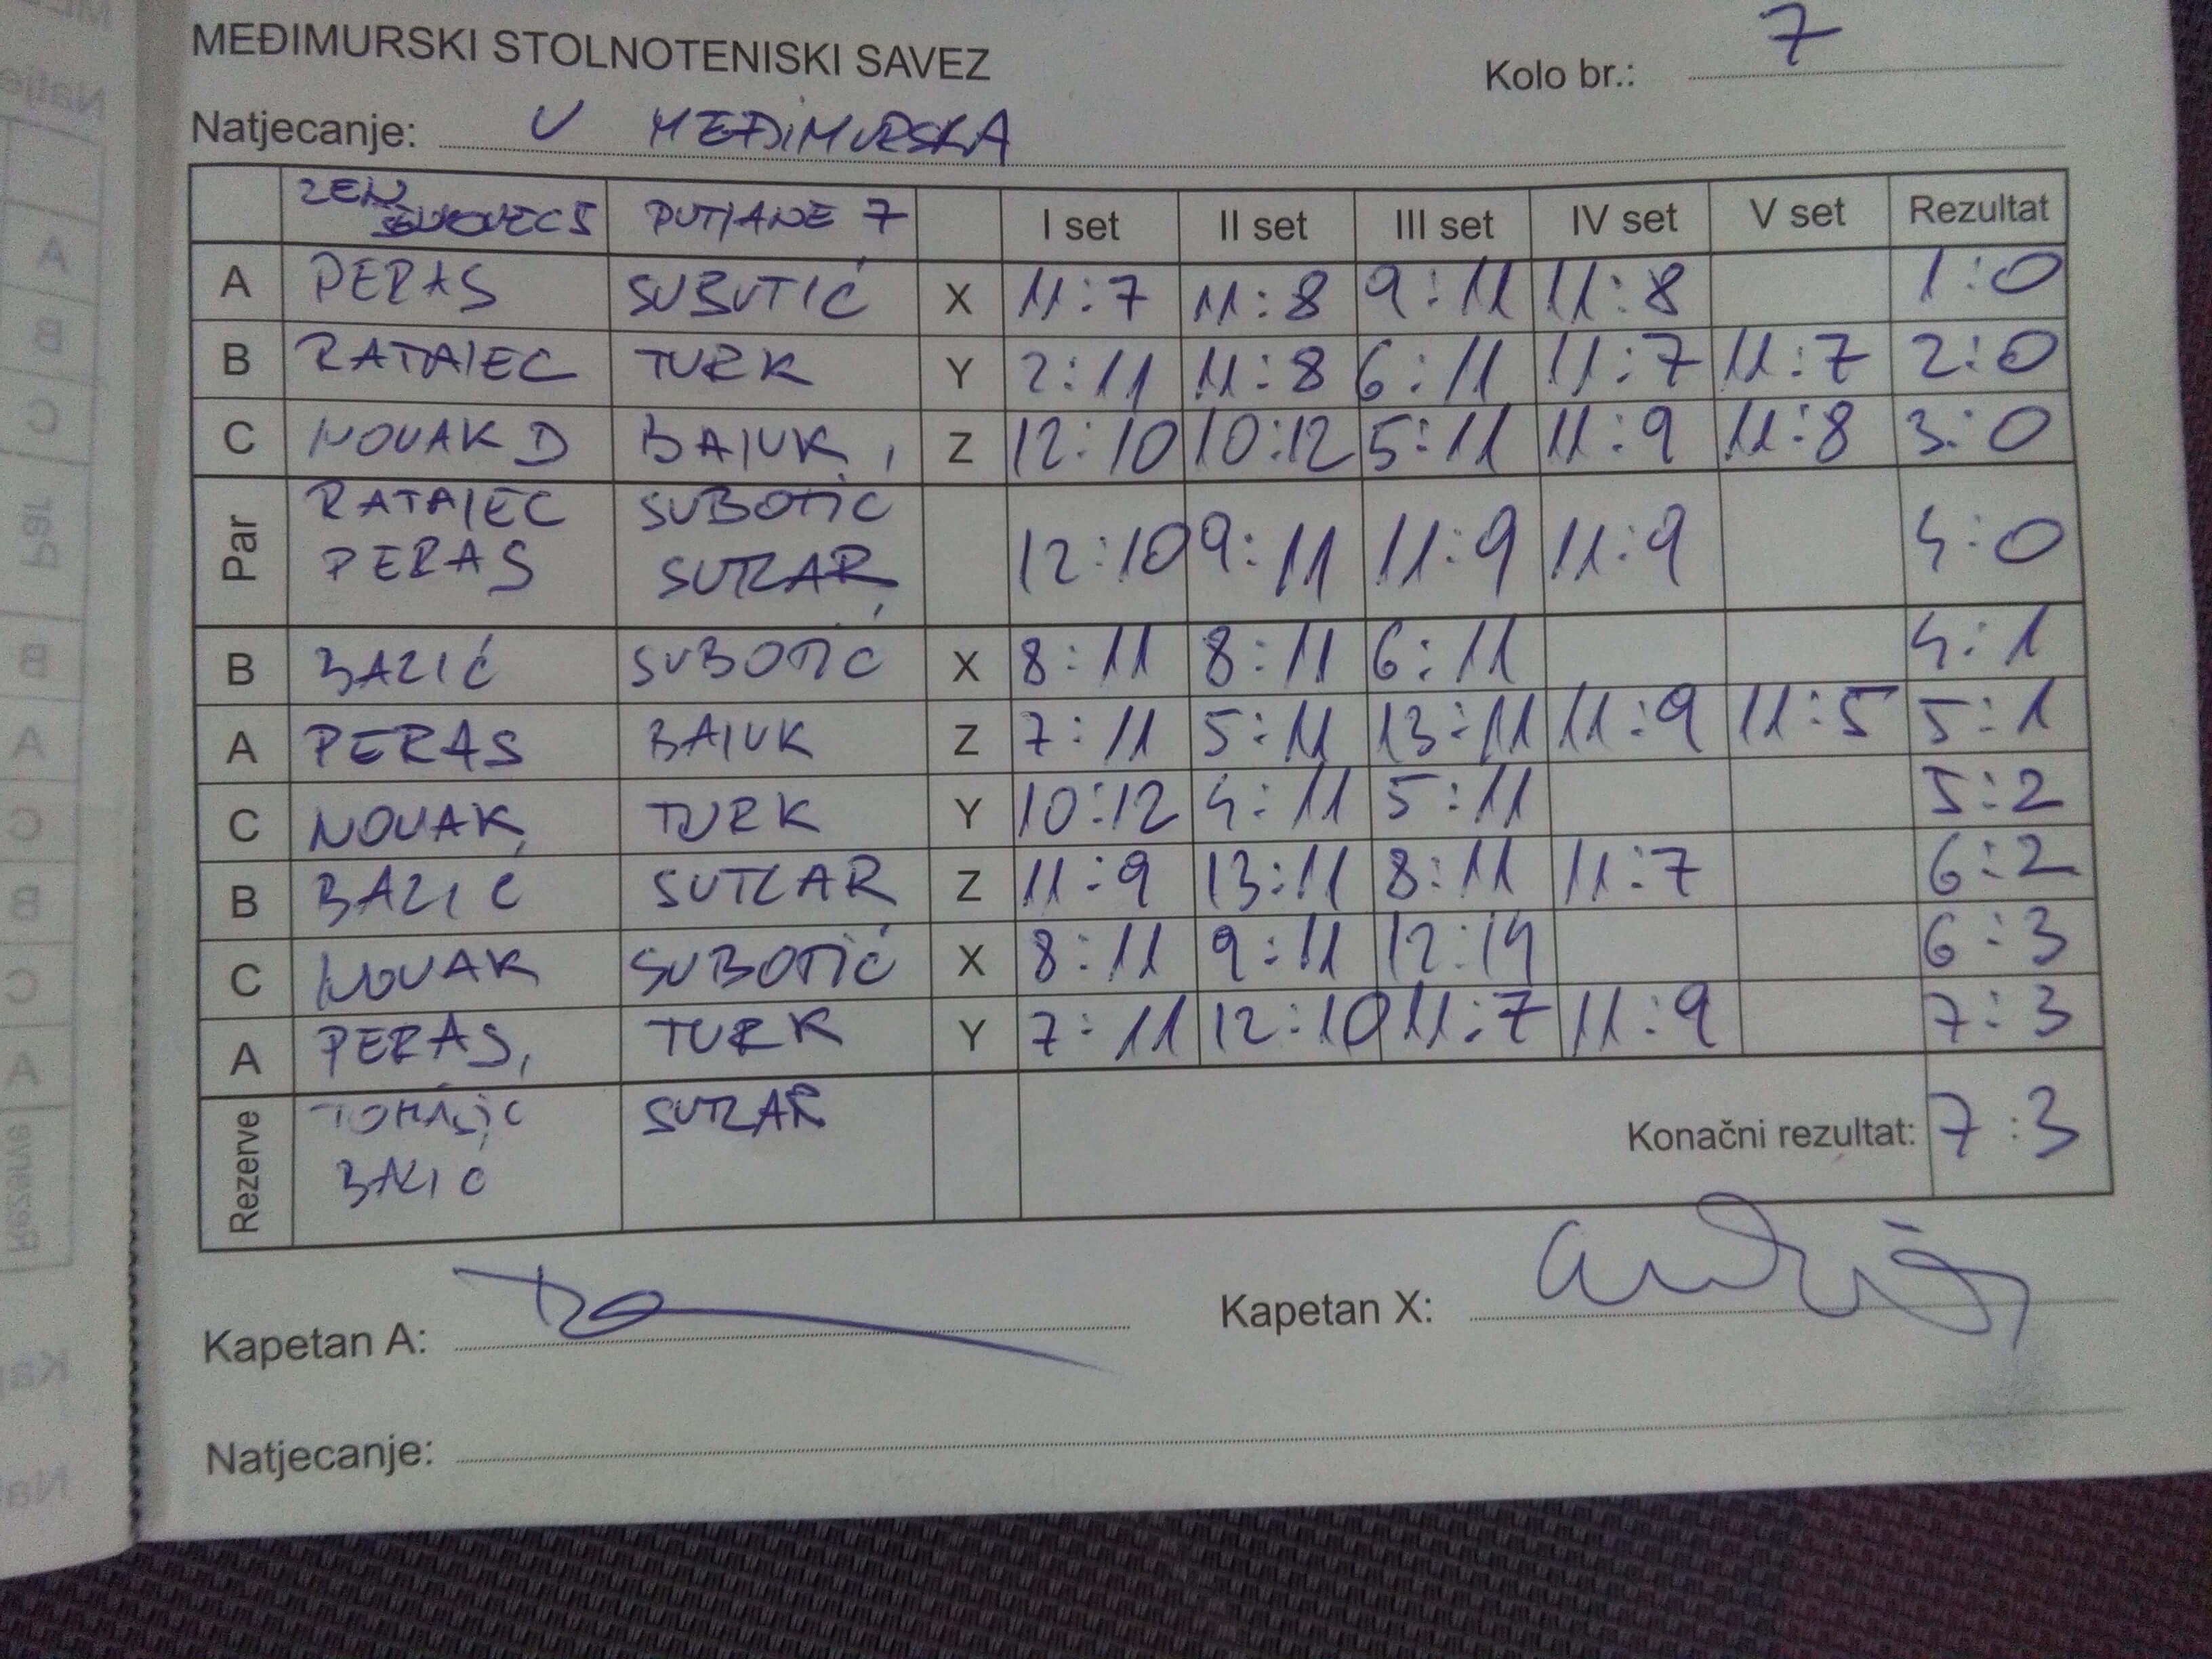 MEĐIMURSKI STOLNOTENISKI SAVEZ
Kolo br.: 7
Natjecanje: V MEĐIMURSKA
ZEN PUTJANE 7 I set II set III set IV set V set Rezultat
A PERAS SUBUTIĆ X 11:7 11:8 9:11 11:8 1:0
B RATAJEC TURK Y 2:11 11:8 6:11 11:7 11:7 2:0
C NOVAK D BAJUK Z 12:10 10:12 5:11 11:9 11:8 3:0
Par RATAJEC SUBOTIĆ 12:10 9:11 11:9 11:9 4:0
PERAS SUTLAR
B BAZIĆ SUBOTIĆ X 8:11 8:11 6:11 4:1
A PERAS BAJUK Z 7:11 5:11 13:11 11:9 11:5 5:1
C NOVAK TURK Y 10:12 4:11 5:11 5:2
B BAZIĆ SUTLAR Z 11:9 13:11 8:11 11:7 6:2
C NOVAK SUBOTIĆ X 8:11 9:11 12:14 6:3
A PERAS, TURK Y 7:11 12:10 11:7 11:9 7:3
Rezerve TOMAŠIĆ SUTLAR Konačni rezultat: 7:3
BAZIĆ
Kapetan A: Kapetan X:
Natjecanje: